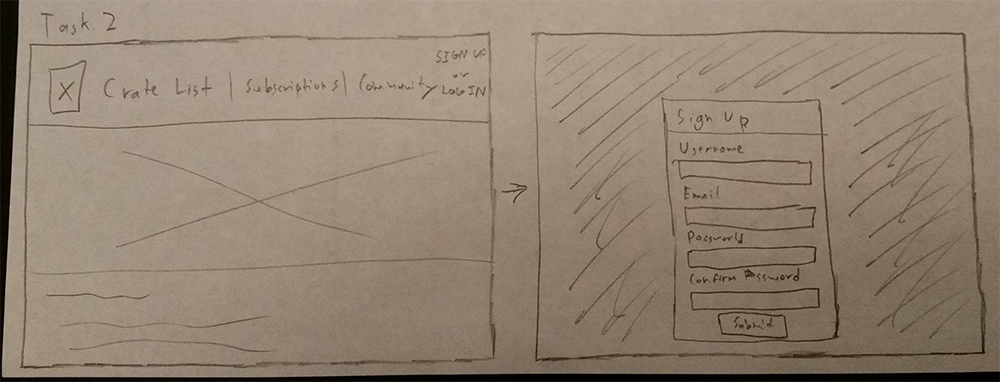 Task 2
X Crate List | Subscriptions | Community
SIGN UP
or
LOG IN
Sign Up
Username
Email
Password
Confirm Password
Submit